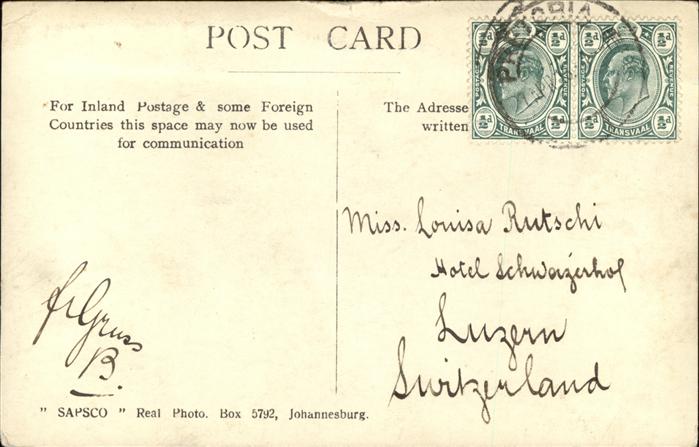 POST CARD
For Inland Postage & some Foreign
Countries this space may now be used
for communication
The Adresse
written
PRETORIA
½d ½d ½d ½d
POSTAGE REVENUE
½d ½d ½d ½d
TRANSVAAL TRANSVAAL
Miss. Louisa Rutschi
Hotel Schweizerhof
Luzern
Switzerland
fr Gruss
B.
" SAPSCO " Real Photo. Box 5792, Johannesburg.